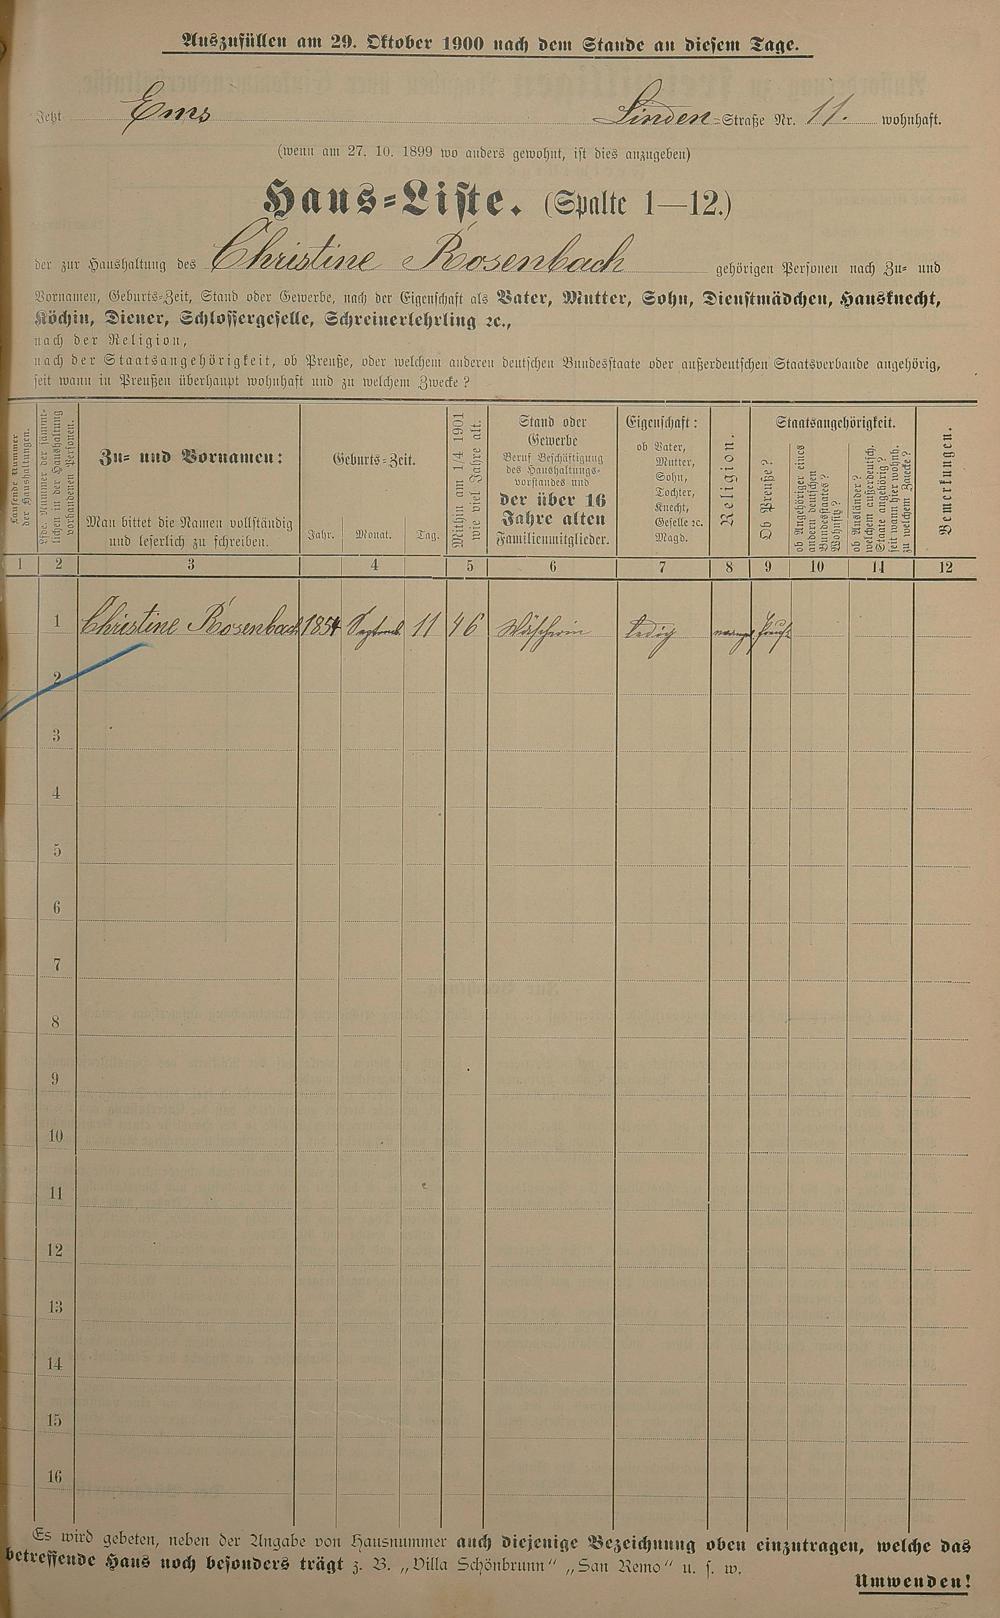 Auszufüllen am 29. Oktober 1900 nach dem Stande an diesem Tage.
Jetzt Ems Linden-Straße Nr. 11. wohnhaft.
(wenn am 27. 10. 1899 wo anders gewohnt, ist dies anzugeben)
Haus-Liste. (Spalte 1—12.)
der zur Haushaltung des Christine Rosenbach gehörigen Personen nach Zu- und
Vornamen, Geburts-Zeit, Stand oder Gewerbe, nach der Eigenschaft als Vater, Mutter, Sohn, Dienstmädchen, Hausknecht,
Köchin, Diener, Schlossergeselle, Schreinerlehrling ꝛc.,
nach der Religion,
nach der Staatsangehörigkeit, ob Preuße, oder welchem anderen deutschen Bundesstaate oder außerdeutschen Staatsverbande angehörig,
seit wann in Preußen überhaupt wohnhaft und zu welchem Zwecke?
Laufende Nummer
der Haushaltungen.
Lfde. Nummer der sämmt-
lichen in der Haushaltung
vorhandenen Personen.
Zu- und Vornamen:
Man bittet die Namen vollständig
und leserlich zu schreiben.
Geburts-Zeit.
Jahr. Monat. Tag.
Mithin am 1/4 1901
wie viel Jahre alt.
Stand oder
Gewerbe
Beruf Beschäftigung
des Haushaltungs-
vorstandes und
der über 16
Jahre alten
Familienmitglieder.
Eigenschaft:
ob Vater,
Mutter,
Sohn,
Tochter,
Knecht,
Geselle ꝛc.
Magd.
Religion.
Staatsangehörigkeit.
Ob Preuße?
ob Angehöriger eines
andern deutschen
Bundesstaates?
Wohnsitz?
ob Ausländer?
welchem außerdeutsch.
Staate angehörig?
seit wann hier wohnh.
zu welchem Zwecke?
Bemerkungen.
1 2 3 4 5 6 7 8 9 10 11 12
1 Christine Rosenbach 1854 Septemb. 11 46 Wäscherin ledig Preuß.
2
3
4
5
6
7
8
9
10
11
12
13
14
15
16
Es wird gebeten, neben der Angabe von Hausnummer auch diejenige Bezeichnung oben einzutragen, welche das
betreffende Haus noch besonders trägt z. B. „Villa Schönbrunn" „San Remo" u. s. w.
Umwenden!